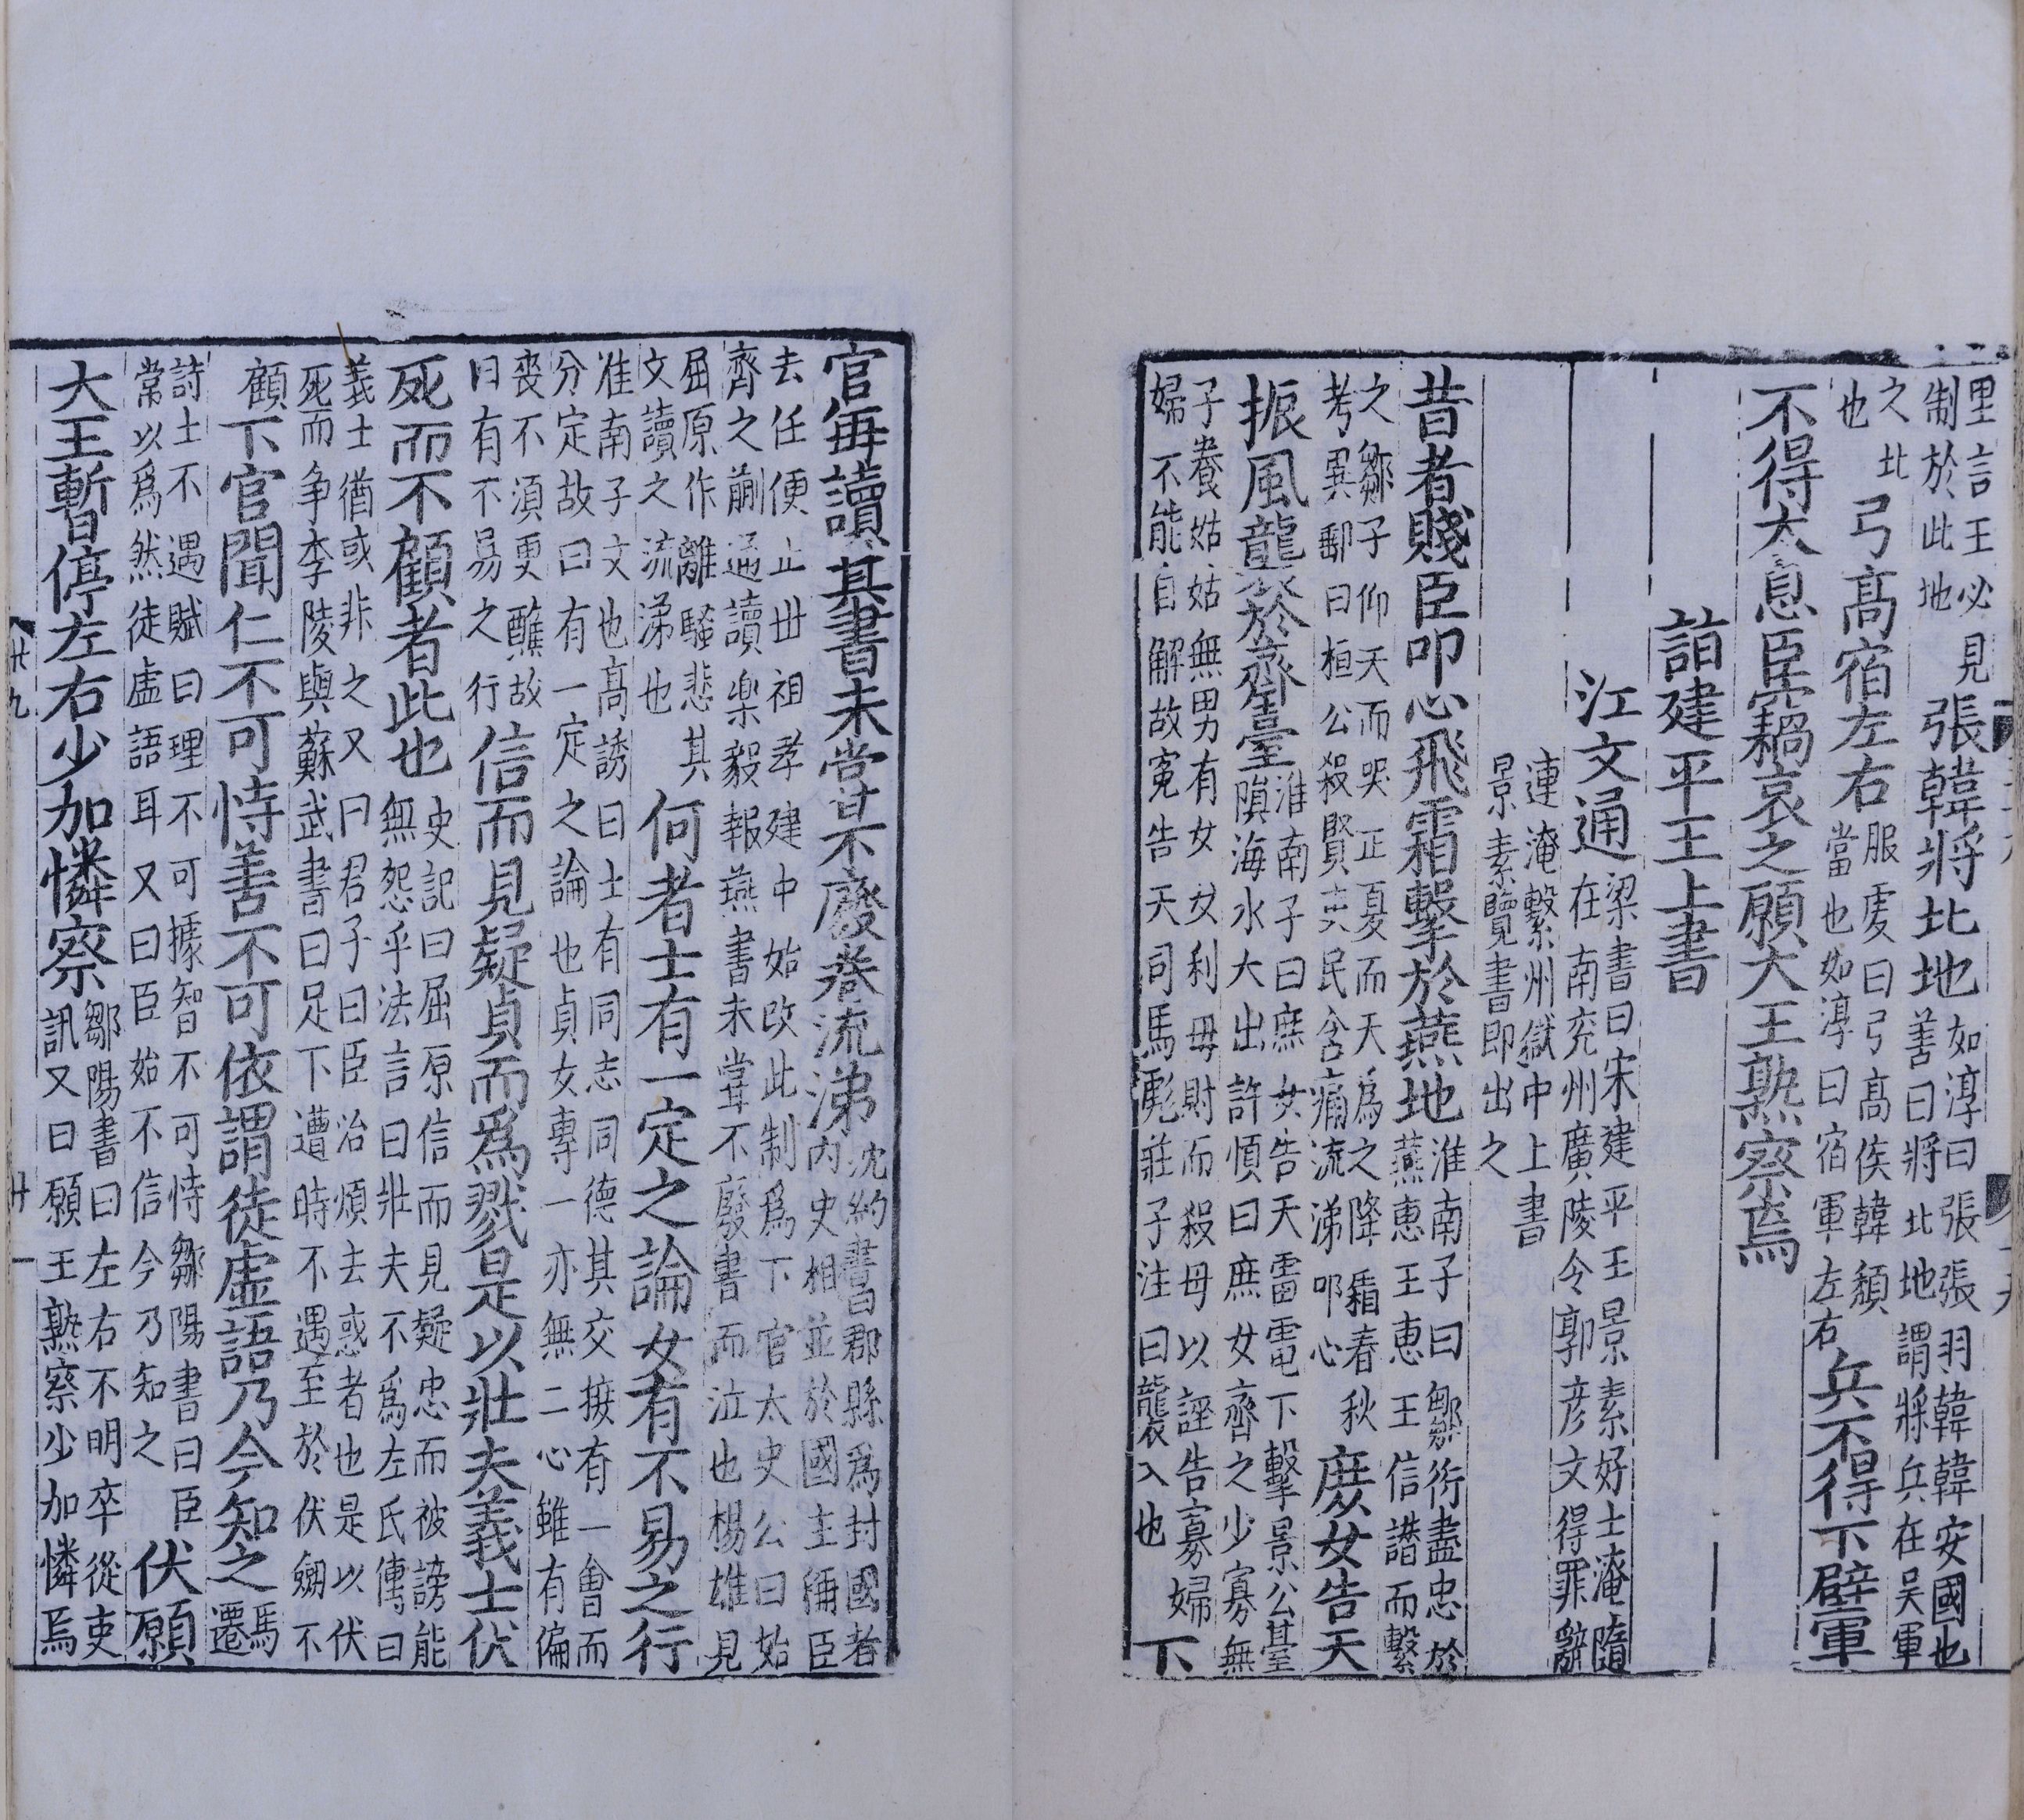 里言王必見制於此地張韓將北地如淳曰張張羽韓韓安國也善曰將北地謂將兵在吳軍
之北也弓高宿左右服虔曰弓高侯韓頽當也如淳曰宿軍左右兵不得下壁軍
不得太息臣竊哀之願大王熟察焉
詣建平王上書
江文通梁書曰宋建平王景素好士淹隨在南兖州廣陵令郭彦文得罪辭
連淹繫州獄中上書景素覽書即出之
昔者賤臣叩心飛霜擊於燕地淮南子曰鄒衍盡忠於燕惠王惠王信譖而繫
之鄒子仰天而哭正夏而天爲之降霜春秋考異郵曰桓公殺賢吏民含痛流涕叩心庶女告天
振風襲於齊臺淮南子曰庶女告天雷電下擊景公臺隕海水大出許慎曰庶女齊之少寡無
子養姑姑無男有女女利母財而殺母以誣告寡婦婦不能自解故寃告天司馬彪莊子注曰襲入也下
官每讀其書未嘗不廢卷流涕沈約書曰郡縣爲封國者内史相並於國主稱臣
去任便止丗祖孝建中始改此制爲下官太史公曰始齊之蒯通讀樂毅報燕書未甞不廢書而泣也楊雄見
屈原作離騷悲其文讀之流涕也何者士有一定之論女有不易之行
淮南子文也高誘曰士有同志同德其交接有一會而分定故曰有一定之論也貞女專一亦無二心雖有偏
喪不須更醮故曰有不易之行信而見疑貞而爲戮是以壯夫義士伏
死而不顧者此也史記曰屈原信而見疑忠而被謗能無怨乎法言曰壯夫不爲左氏傳曰
義士猶或非之又曰君子曰臣治煩去惑者也是以伏死而争李陵與蘇武書曰足下遭時不遇至於伏劒不
顧下官聞仁不可恃善不可依謂徒虛語乃今知之馬遷
詩士不遇賦曰理不可據智不可恃鄒陽書曰臣常以爲然徒虛語耳又曰臣始不信今乃知之伏願
大王暫停左右少加憐察鄒陽書曰左右不明卒從吏訊又曰願王熟察少加憐焉